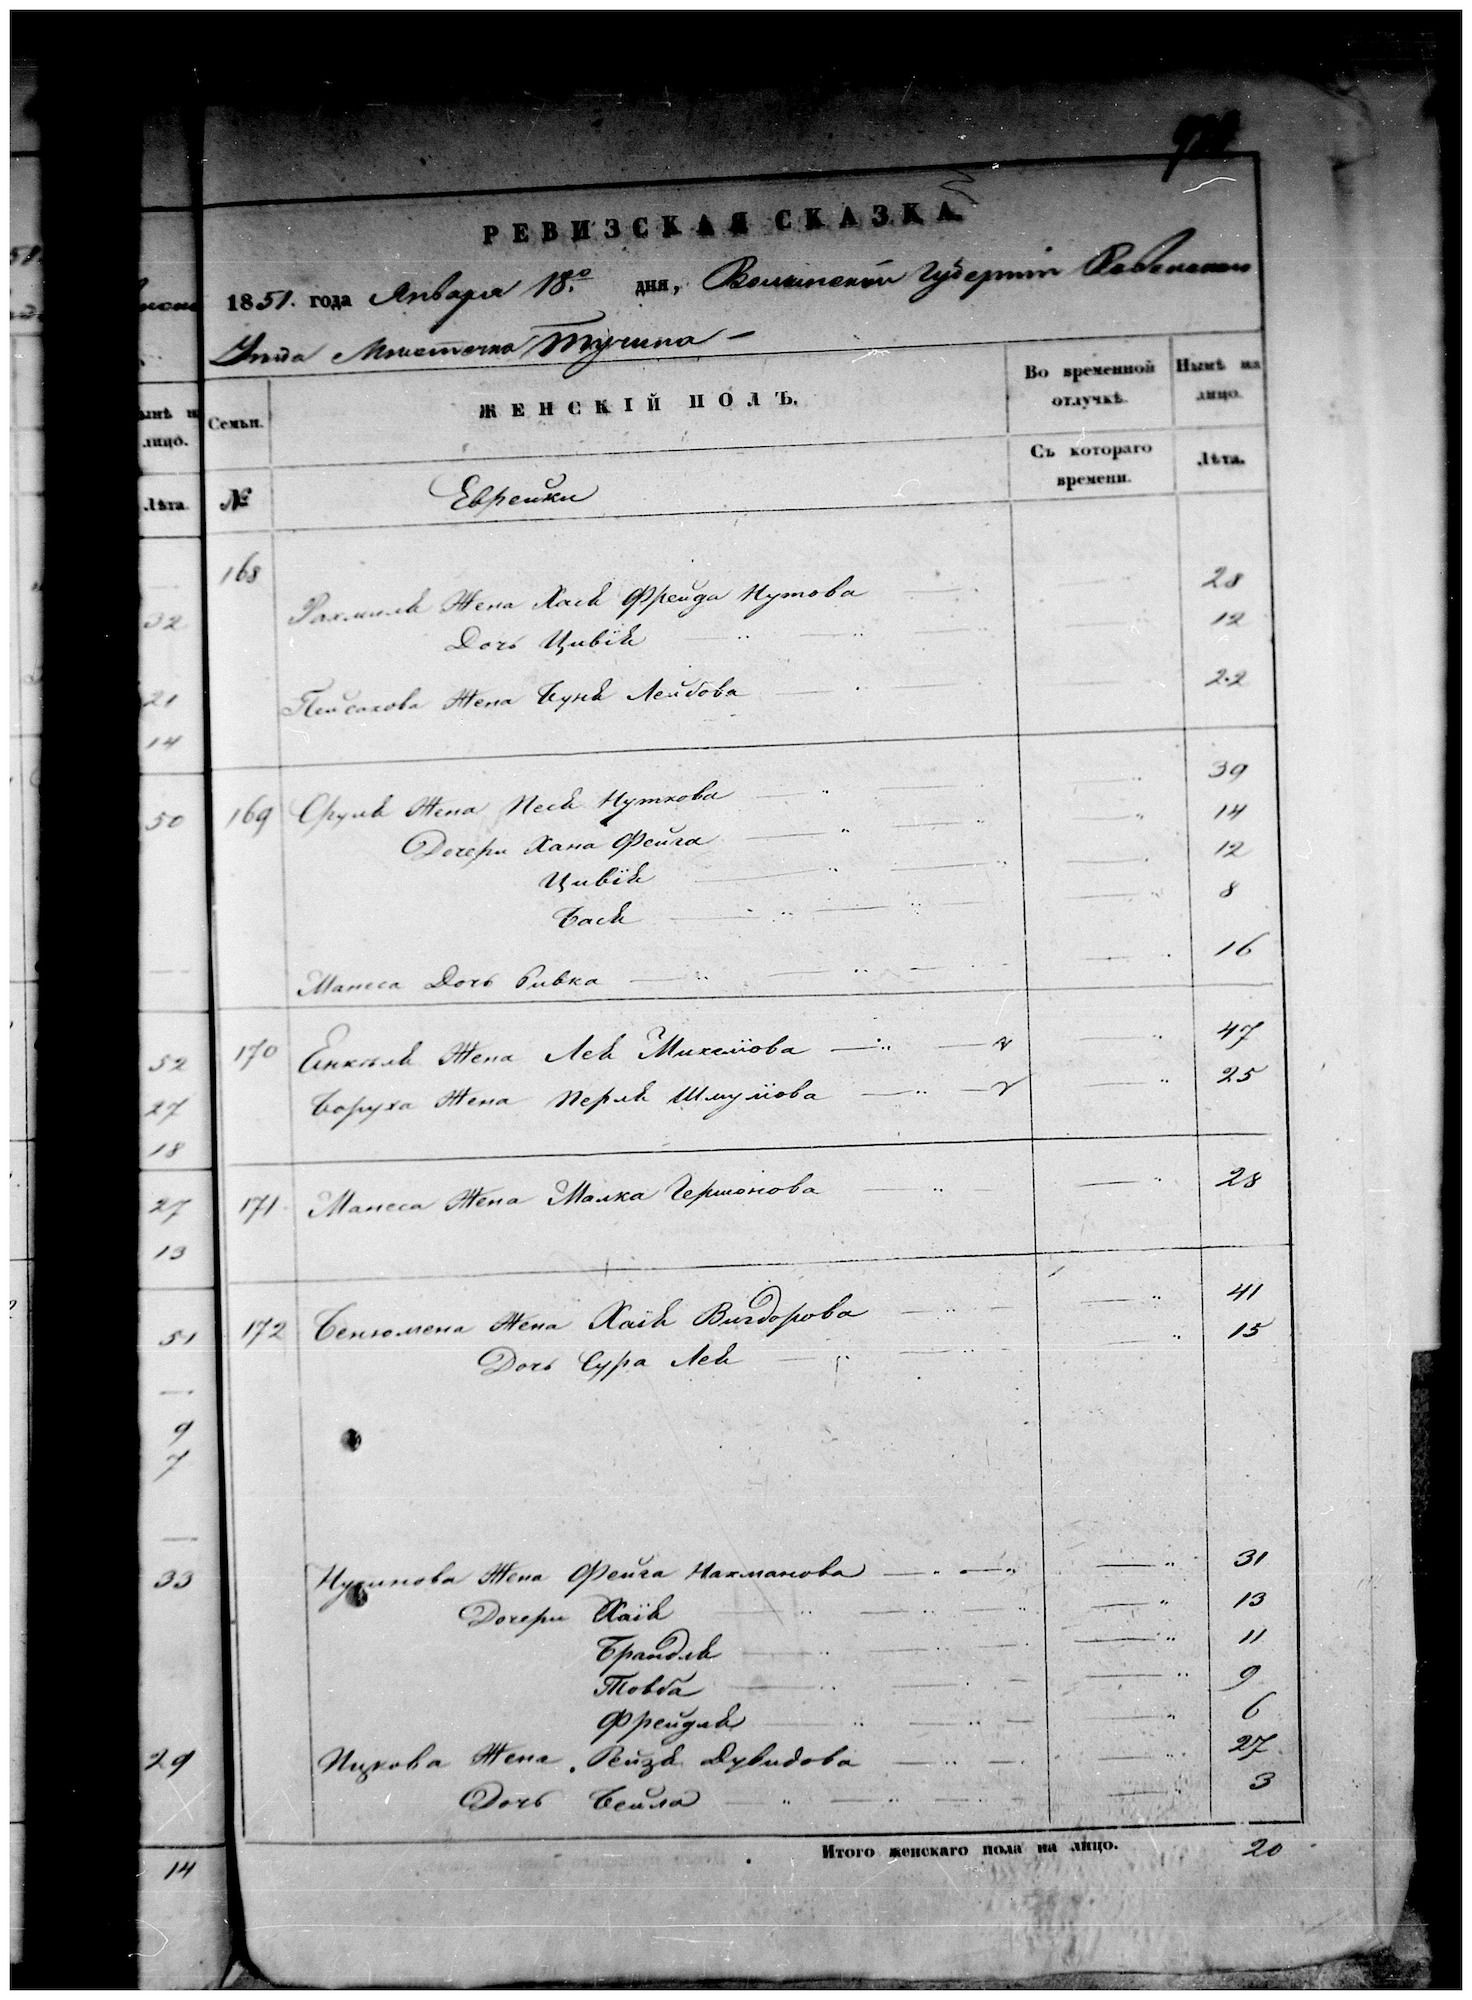 РЕВИЗСКАЯ СКАЗКА.
1851. года Января 18го дня, Волынской Губернiи Ровенскаго
Уѣзда Мѣстечка Тучина
Нынѣ н
лицо.
Лѣта.
Семьи.
№
ЖЕНСКIЙ ПОЛЪ.
Во временной отлучкѣ.
Съ котораго времени.
Нынѣ на лицо.
Лѣта.
Еврейки
168
Рахмиля Жена Хася Фрейда Нутова 28
32 Дочь Цивiя 12
21 Пейсахова Жена Буня Лейбова 22
14
50 169 Сруля Жена Песя Нутхова 39
Дочери Хана Фейга 14
Цивiя 12
Бася 8
Манеса Дочь Ривка 16
52 170 Енкеля Жена Лея Михелiова 47
27 Боруха Жена Перля Шмулiова 25
18
27 171 Манеса Жена Малка Гершонова 28
13
51 172 Бенюмена Жена Хаiя Вигдорова 41
Дочь Сура Лея 15
9
7
33 Жена Фейга Нахманова 31
Дочери Хаiя 13
Брайдля 11
Товба 9
Фрейдля 6
29 Ицкова Жена Рейзя Дувидова 27
Дочь Бейла 3
14 Итого женскаго пола на лицо. 20